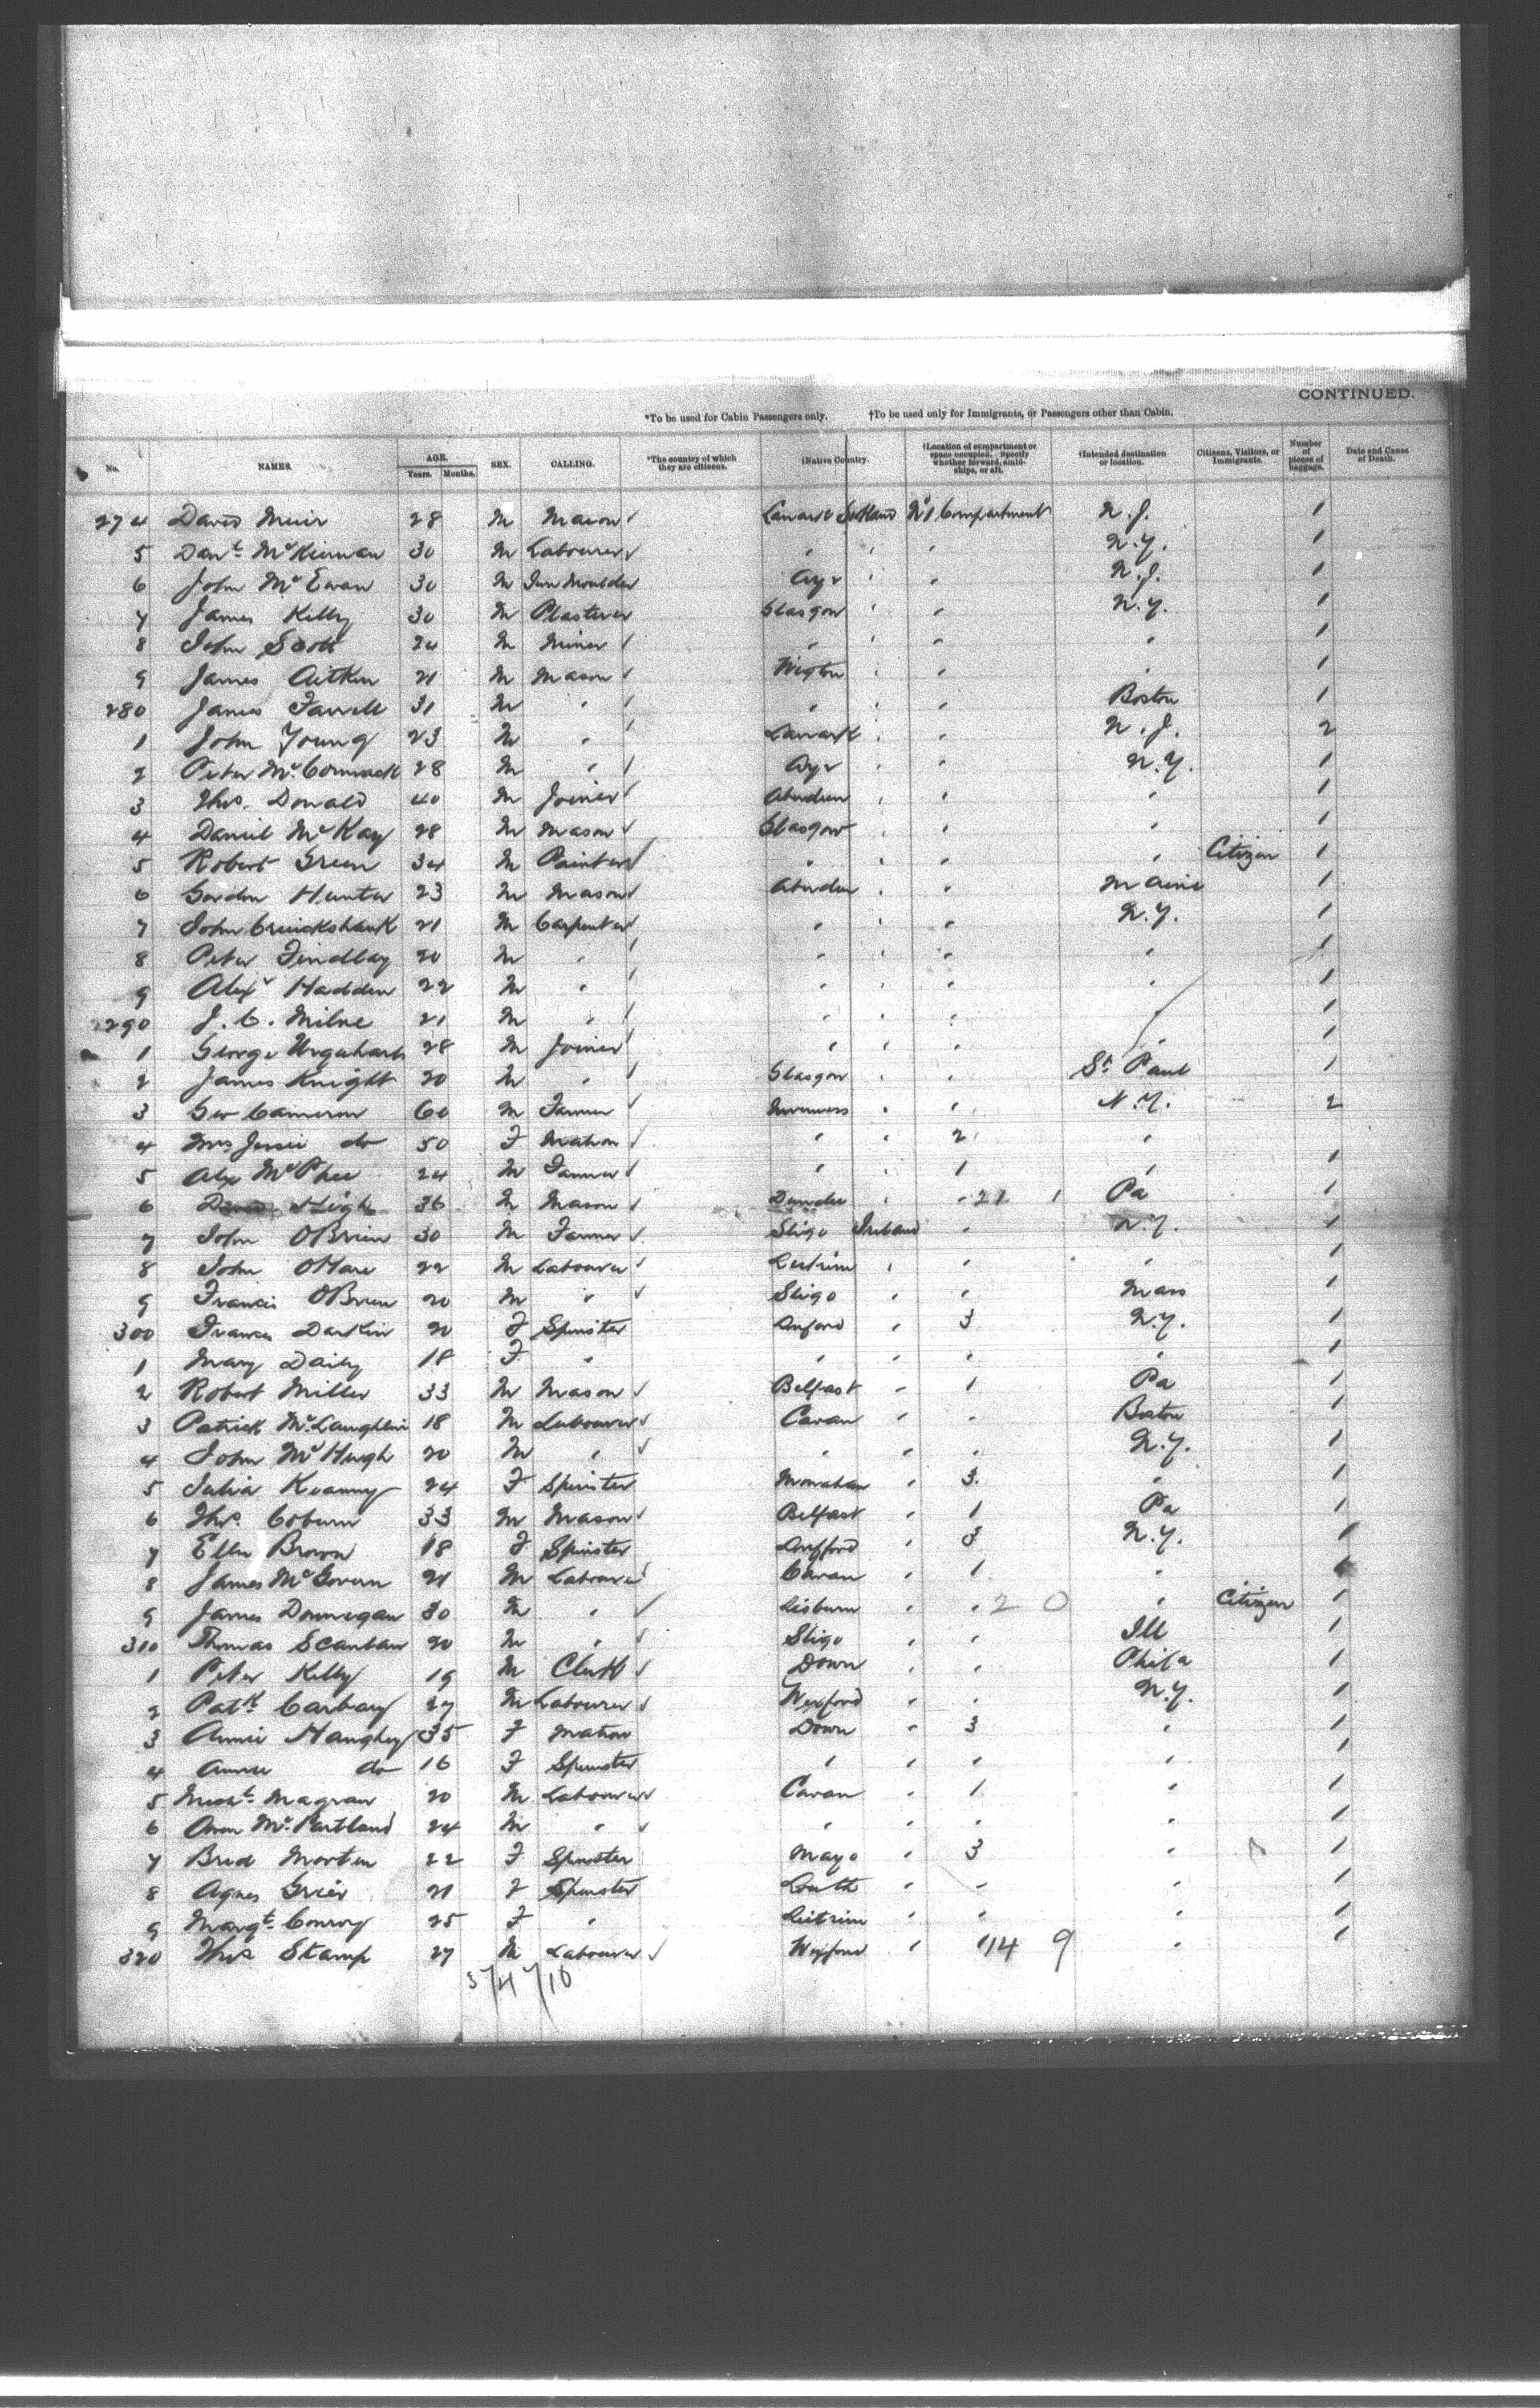 CONTINUED.
*To be used for Cabin Passengers only. †To be used only for Immigrants, or Passengers other than Cabin.
No. NAMES. AGE. Years. Months. SEX. CALLING. *The country of which they are citizens. †Native Country. †Location of compartment or space occupied. Specify whether forward, amidships, or aft. †Intended destination or location. Citizens, Visitors, or Immigrants. Number of pieces of baggage. Date and Cause of Death.
274 David Muir 28 M Mason Lanark Scotland No 1 Compartment N.J. 1
5 Danl. McKiernan 30 M Labourer " " " N.Y. 1
6 John McEwan 30 M Iron Moulder Ayr " " N.J. 1
7 James Kelly 30 M Plasterer Glasgow " " N.Y. 1
8 John Scott 24 M Miner " " " " 1
9 James Aitken 21 M Mason Wigton " " 1
280 James Farrell 31 M " " " Boston 1
1 John Young 23 M " Lanark " " N.J. 2
2 Peter McCormack 28 M " Ayr " " N.Y. 1
3 Thos. Donald 40 M Joiner Aberdeen " " " 1
4 Daniel McKay 28 M Mason Glasgow " " " 1
5 Robert Green 34 M Painter " " " " Citizen 1
6 Gordon Hunter 23 M Mason Aberdeen " " Maine 1
7 John Cruickshank 21 M Carpenter " " " N.Y. 1
8 Peter Findlay 20 M " " " " " 1
9 Alexr Hadden 22 M " " " " " 1
290 J. C. Milne 21 M " " " " 1
1 George Urquhart 28 M Joiner " " " " 1
2 James Knight 20 M " Glasgow " " St. Paul 1
3 Geo Cameron 60 M Farmer Inverness " " N.Y. 2
4 Mrs Jessie do 50 F Matron " " 2 "
5 Alex McPhee 24 M Farmer " 1 " 1
6 David High 36 M Mason Dundee " " 21 1 Pa 1
7 John OBrien 30 M Farmer Sligo Ireland " N.Y. 1
8 John OHare 22 M Labourer Leitrim " " " 1
9 Francis OBrien 20 M " Sligo " " Mass 1
300 Frances Darkin 20 F Spinster " 3 N.Y. 1
1 Mary Daily 18 F " " " " " 1
2 Robert Miller 33 M Mason Belfast " 1 Pa 1
3 Patrick McLaughlin 18 M Labourer Cavan " " Boston 1
4 John McHugh 20 M " " " " N.Y. 1
5 Julia Kearney 24 F Spinster Monahan " 3 " 1
6 Thos. Coburn 33 M Mason Belfast " 1 Pa 1
7 Ellen Brown 18 F Spinster " 3 N.Y. 1
8 James McGovern 21 M Labourer Cavan " 1 "
9 James Donnegan 30 M " Lisburn " " 2 0 " Citizen 1
310 Thomas Scanlan 20 M " Sligo " " Ill 1
1 Peter Kelly 19 M Clerk Down " " Phila 1
2 Patk Carbay 27 M Labourer Wexford " " N.Y. 1
3 Annie Haughey 35 F Matron Down " 3 " 1
4 Annie do 16 F Spinster " " " " 1
5 Michl. Magran 20 M Labourer Cavan " 1 " 1
6 Owen McPartland 24 M " " " " " 1
7 Brid Morten 22 F Spinster Mayo " 3 " 1
8 Agnes Grier 21 F Spinster Louth " " 1
9 Margt. Conroy 25 F " Leitrim " " " 1
320 Thos Stamp 27 M Labourer Wexford " 14 9 " 1